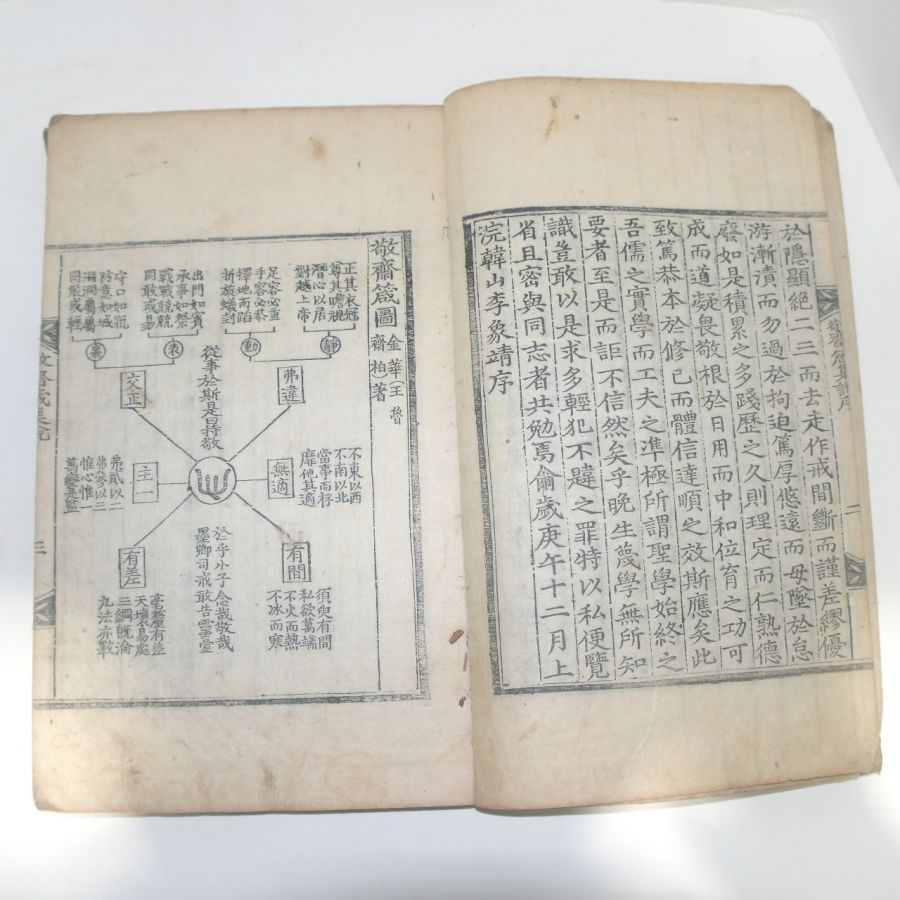 於隱顯絕二三而去走作戒間斷而謹差繆優
游漸漬而勿過於拘迫篤厚悠遠而毋墜於怠
廢如是積累之多踐歷之久則理定而仁熟德
成而道凝畏敬根於日用而中和位育之功可
致篤恭本於修已而體信達順之效斯應矣此
吾儒之實學而工夫之準極所謂聖學始終之
要者至是而詎不信然矣乎晚生蔑學無所知
識豈敢以是求多輕犯不韙之罪特以私便覽
省且密與同志者共勉焉歲庚午十二月上
浣韓山李象靖序
二
敬齋箴圖
金華王魯
齋柏著
正其衣冠
尊其瞻視
潛心以居
對越上帝
靜
足容必重
手容必恭
擇地而蹈
折旋蟻封
動
弗違
出門如賓
承事如祭
戰戰兢兢
罔敢或易
表
守口如瓶
防意如城
洞洞屬屬
罔敢或輕
裏
交正
從事於斯是曰持敬
心
不東以西
不南以北
當事而存
靡他其適
無適
主一
弗貳以二
弗參以三
惟心惟一
萬變是監
有間
須臾有間
私欲萬端
不火而熱
不冰而寒
有差
毫釐有差
天壤易處
三綱旣淪
九法亦斁
於乎小子念哉敬哉
墨卿司戒敢告靈臺
敬齋箴集說
三